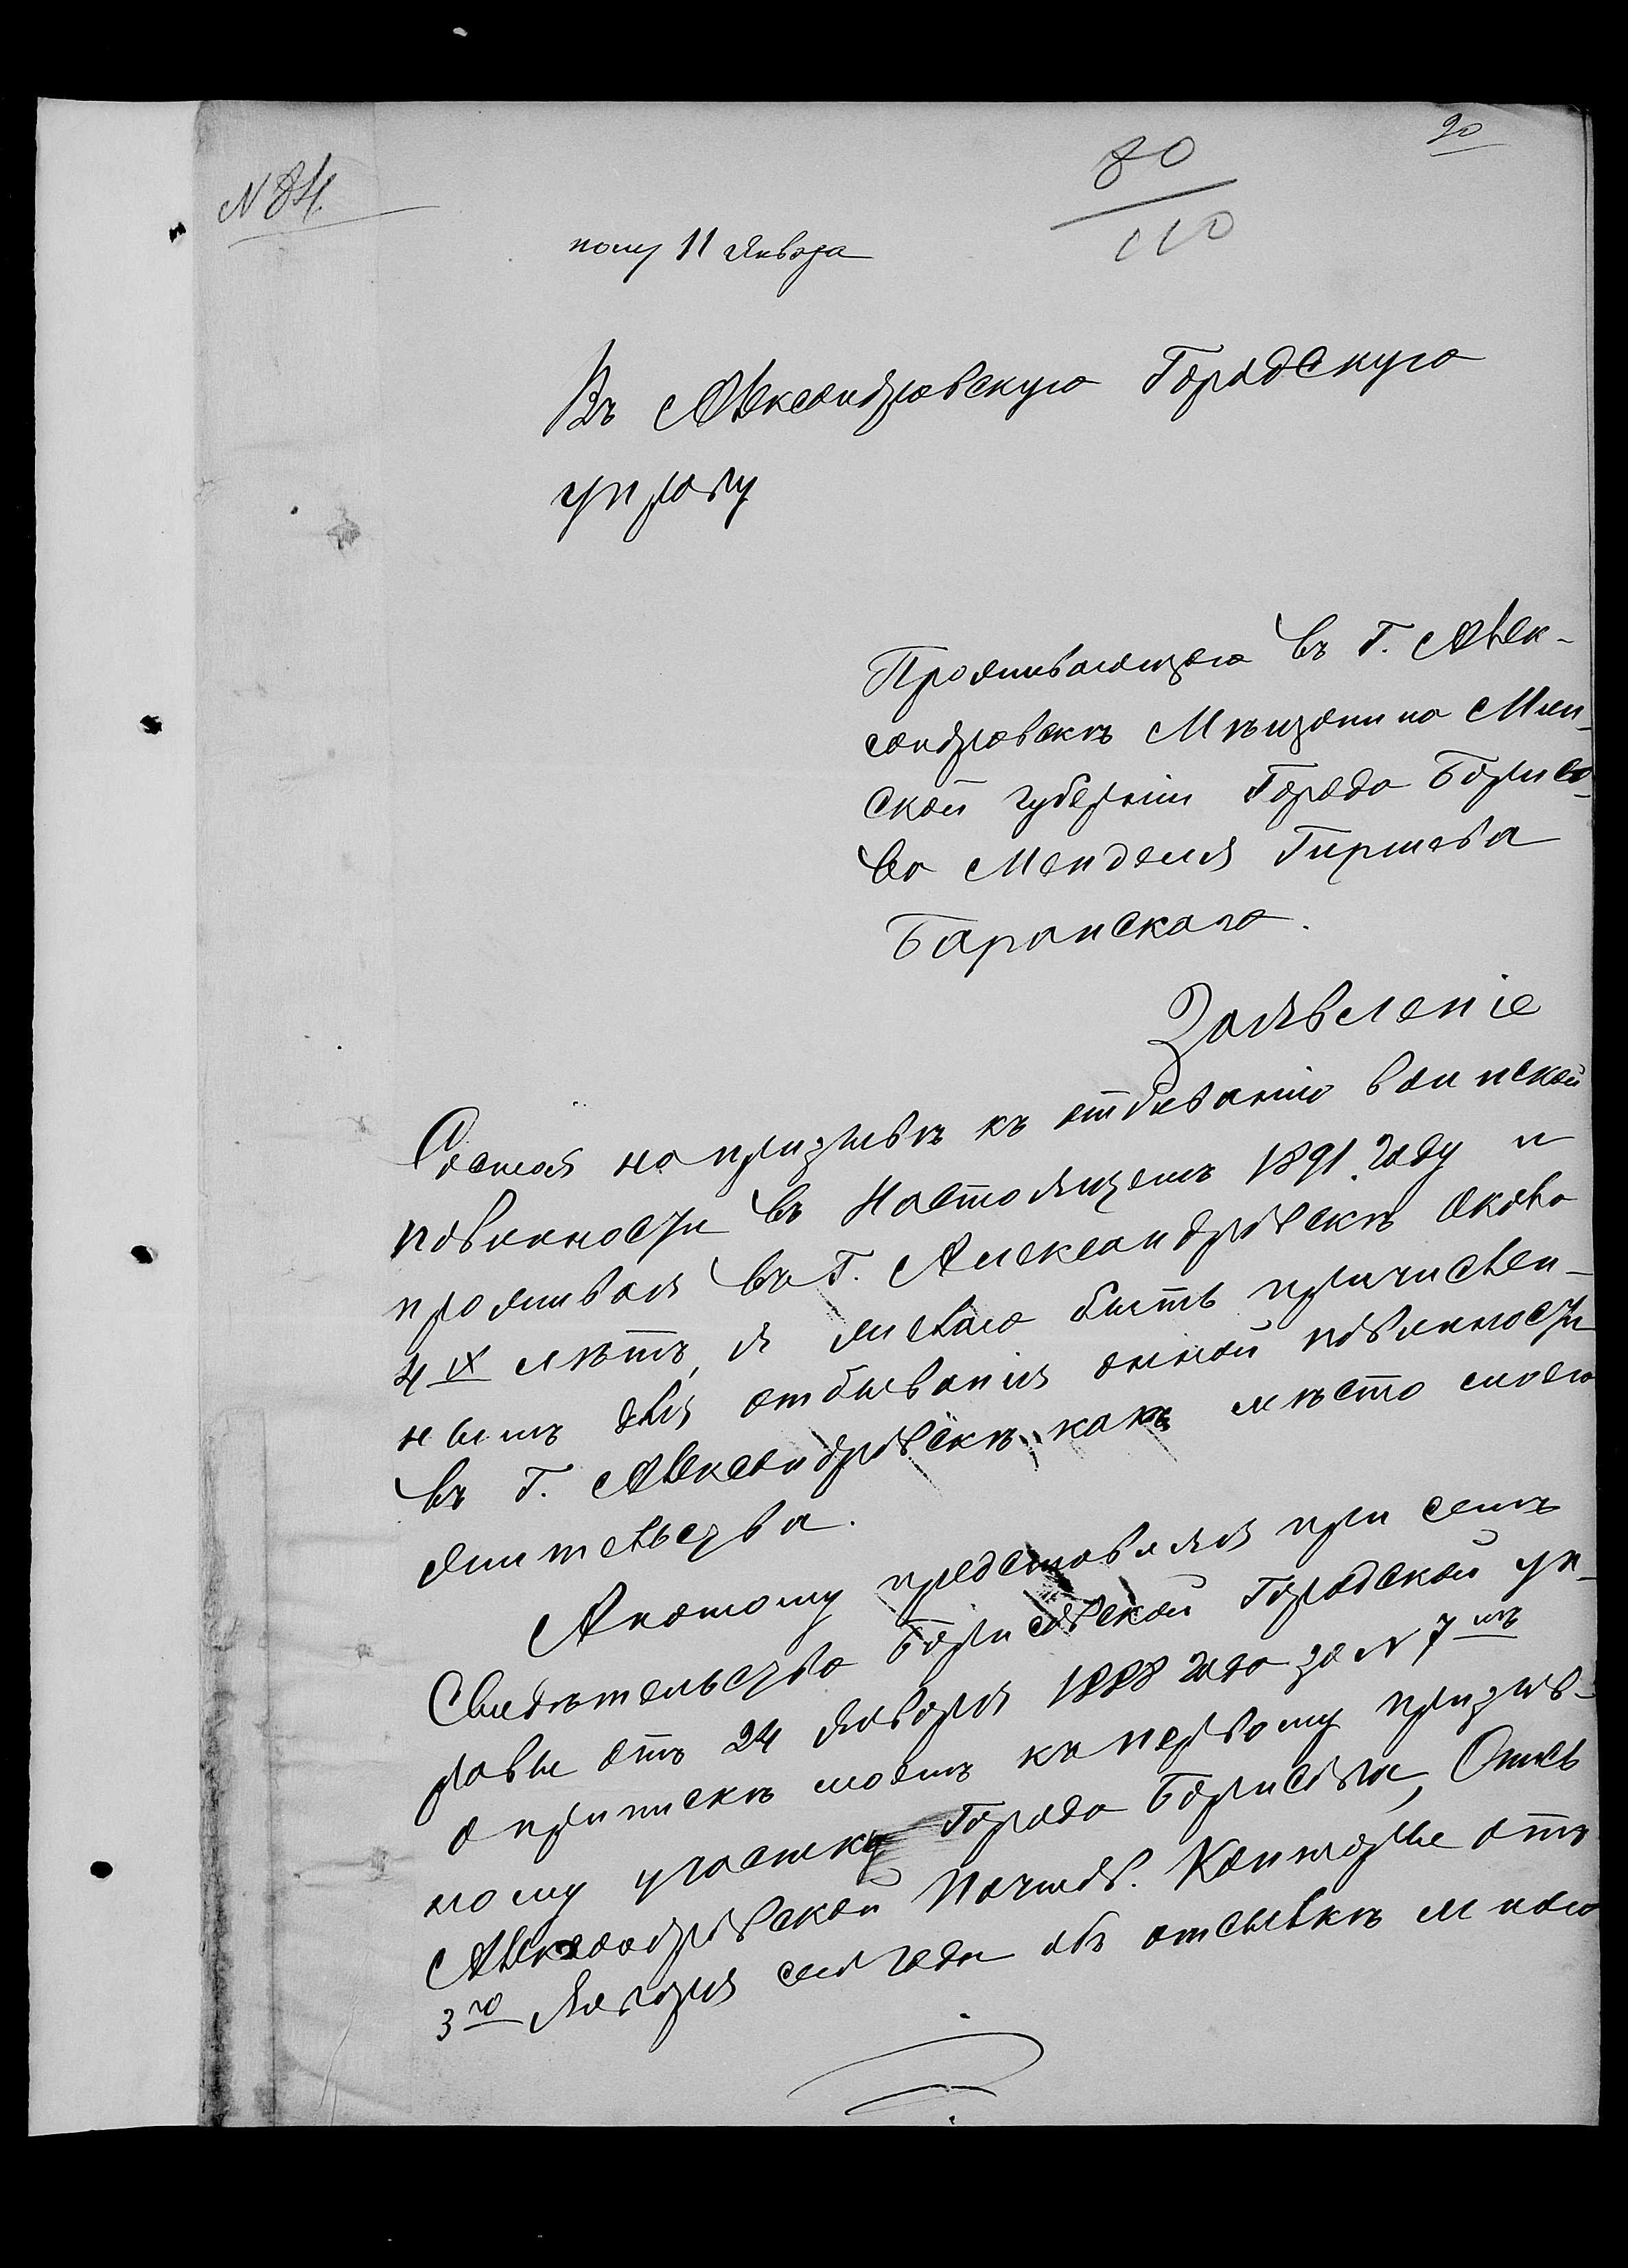 20
N 84.
80
110
полу 11 Января
Въ Александровскую Городскую
управу
Проживающего въ Г. Алек-
сандровскѣ Мѣщанина Мин-
ской губерніи Города Борисо-
ва Менделя Гиршева
Баранскаго.
Заявленіе
Состоя на призывѣ къ отбыванію воинской
повинности въ Настоящемъ 1891 году и
проживая въ Г. Александровскѣ около
4 х лѣтъ, я желаю быть причислен-
нымъ для отбыванія оной повинности
въ Г. Александровскѣ какъ мѣсто моего
жительства.
А потому представляя при семъ
Свидѣтельство Борисовской Городской уп-
равы отъ 24 Января 1888 года за N 7мъ
о припискѣ моемъ къ первому призыв-
ному участку Города Борисова,
Александровской Почтов. Конторы отъ
3го Января сего года объ отсылкѣ мною